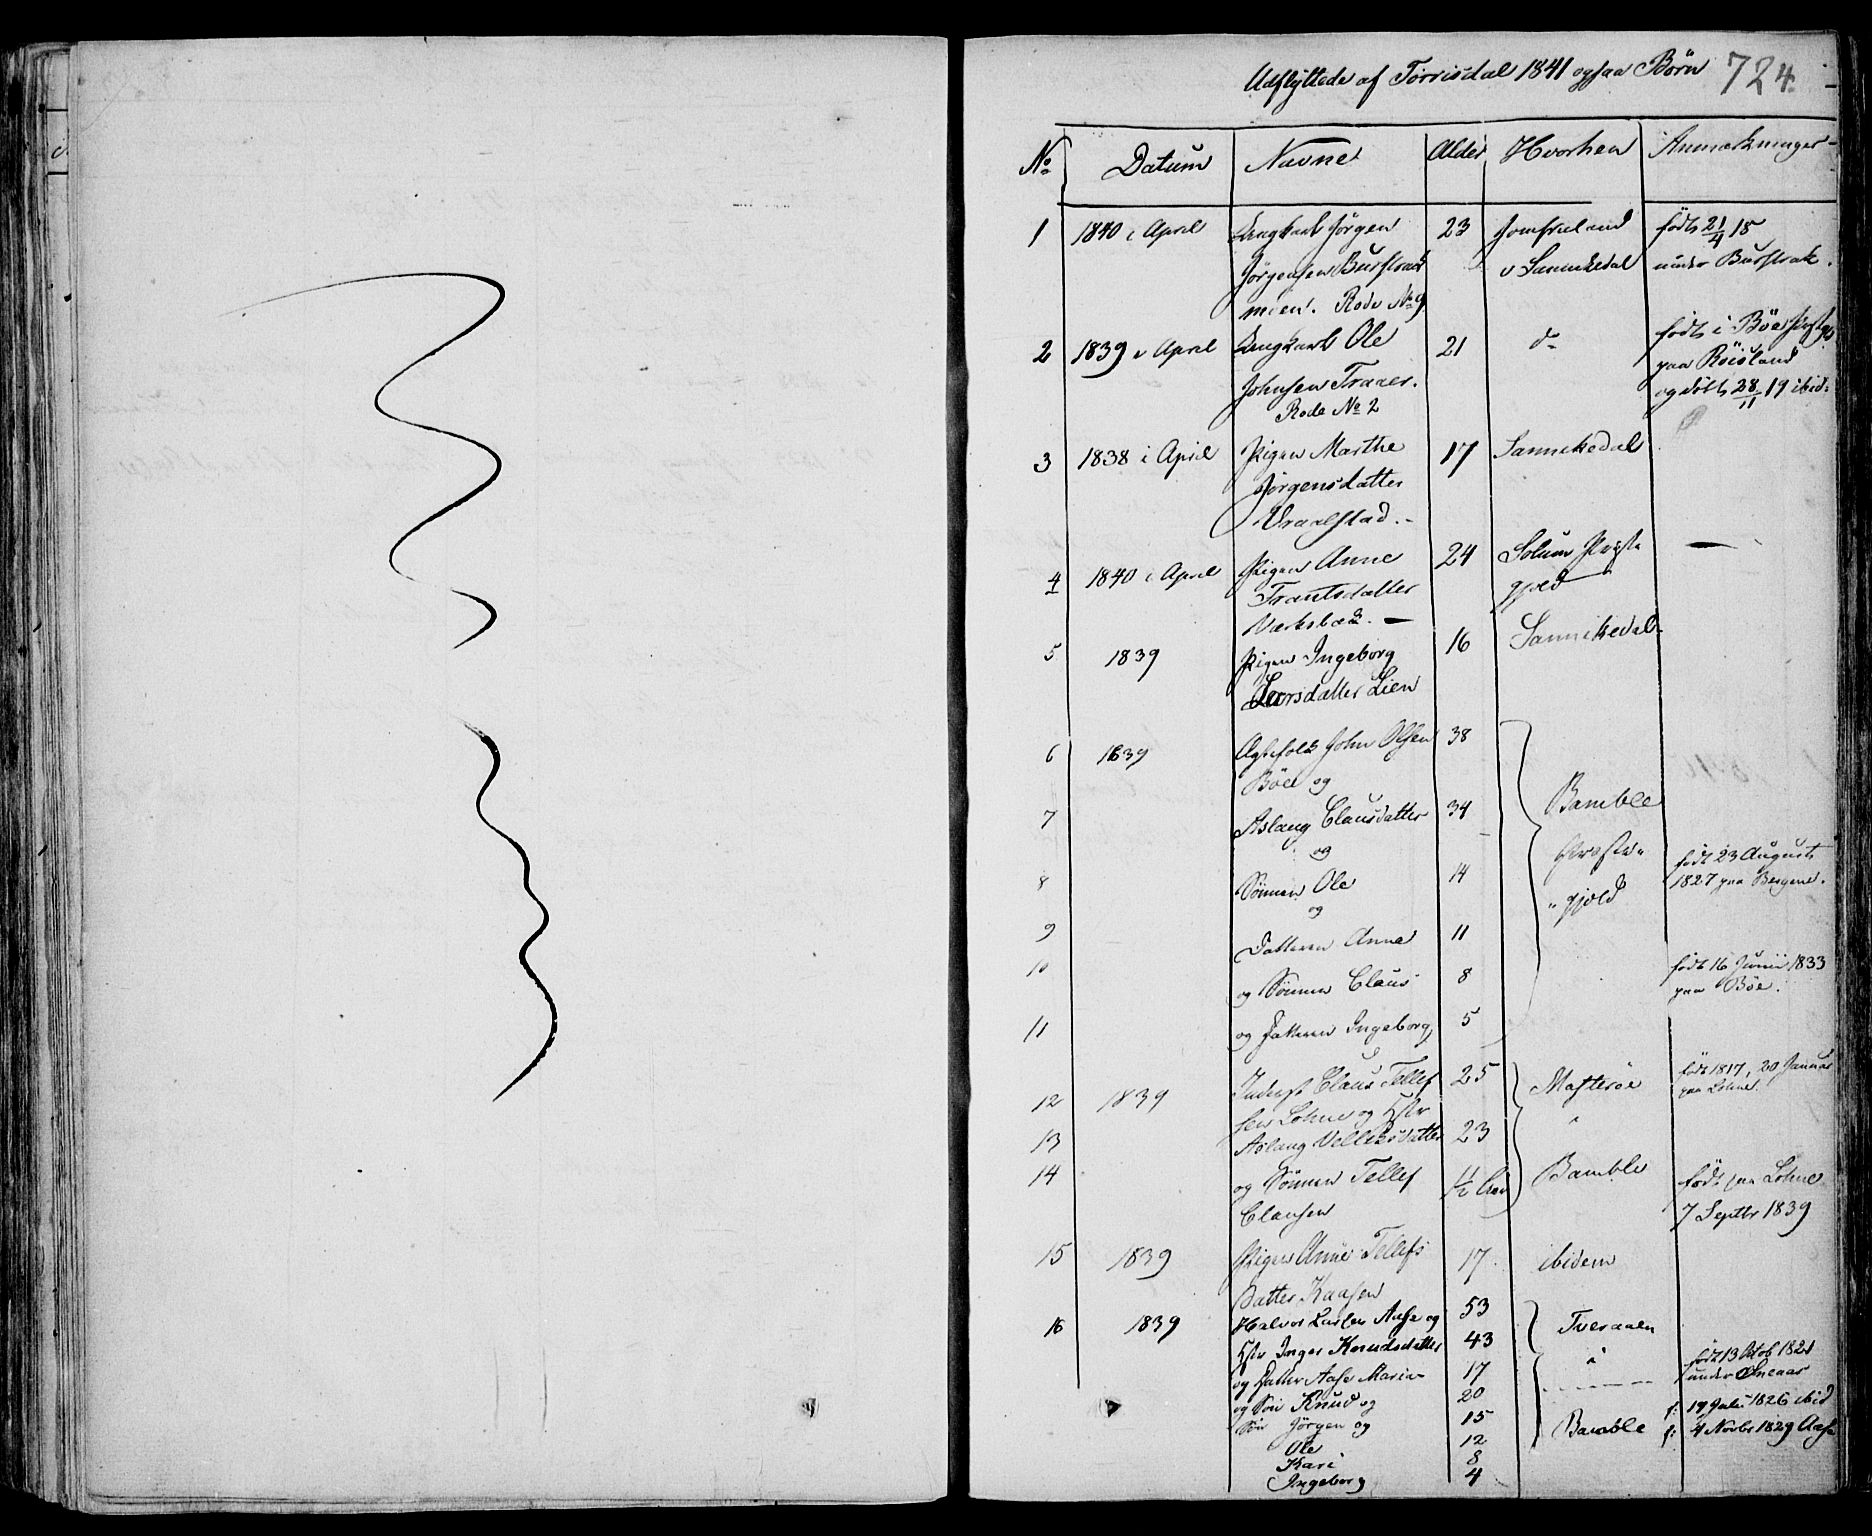 Udflyttede af Torrisdal 1841 ogsaa Børn 724
No Datum Navne Alder Hvorhen Anmærkninger
1 1840 i April Ungkarl Jørgen 23 Jomfrueland født 21/4 18
Jørgensen Burstrak v Sannikedal under Burstrak.
mien. Rode No 9
2 1839 i April Ungkarl Ole 21 do født i Böe
Johnsen Traaer. paa Röisland
Rode No 2 og döbt 28/11 19 ibid.
3 1838 i April Pigen Marthe 17 Sannikedal
Jørgensdatter
Vraalstad.
4 1840 i April Pigen Anne 24 Solum Præste
Frantsdatter gjæld
Værksbæk. —
5 1839 Pigen Ingeborg 16 Sannikedal
Larsdatter Lien
6 1839 Ægtefolk John Olsen 38
Böe og
7 Aslaug Clausdatter 34 Bamble
og
8 Sönnen Ole 14 Præste født 23 August
og gjæld 1827 paa Bergene.
9 Datteren Anne 11
10 og Sönnen Claus 8 født 16 Junii 1833
paa Böe.
11 og Datteren Ingeborg 5
12 1839 Inderst Claus Tellef 25 født 1817, 20 Januar
sen Lohne og Hstr paa Lohne
13 Aslaug 23
14 og Sönnen Tellef 1 1/2 Aar Bamble født paa Lohne
Clausen 7 Septbr 1839
15 1839 Pigen Anne Tellefs 17 ibidem
Datter Kaasen
16 1839 Halvor Larsen Aase og 53 Tveraaen
Hstr Inger Knudsdatter 43 "
og Datter Aase Maria 17 født 13 Octob 1821
under Sneaas
og Sön Knud og 20
Sön Jörgen og 15 Bamble f: 19 Juli 1826 ibid
Ole 12 f: 4 Novbr 1829 Aase
Kari 8
Ingeborg 4